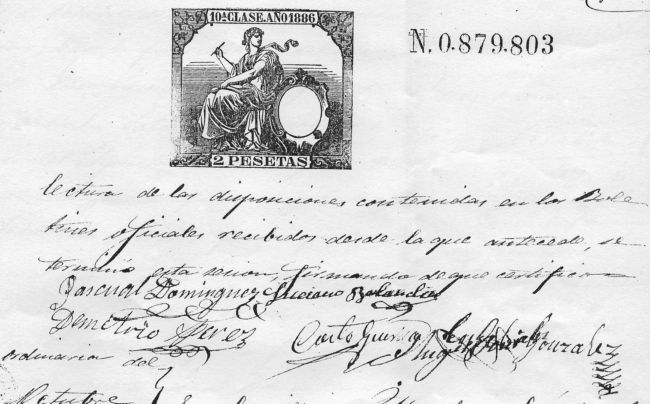 10ª CLASE.AÑO 1886
N. 0.879.803
2 PESETAS
lectura de las disposiciones contenidas en los Bole
tines oficiales recibidos desde la que antecede, se
terminó esta sesion, firmando de que certifico
Pascual Dominguez Luciano
Demetrio Perez
Gonzalez
ordinaria del
Octubre